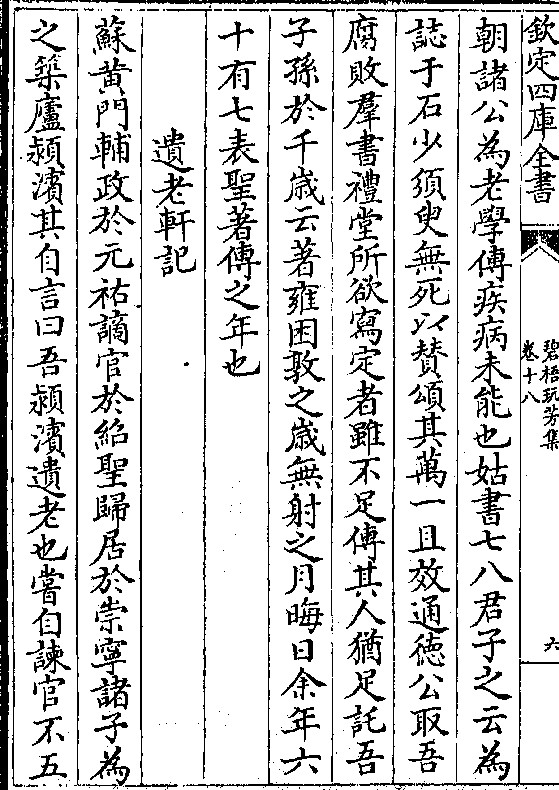 欽定四庫全書
碧梧玩芳集
卷十八
六
朝諸公為老學傅疾病未能也姑書七八君子之云為
誌于石少須臾無死以賛頌其萬一且效通徳公取吾
腐敗羣書禮堂所欲寫定者雖不足傳其人猶足託吾
子孫於千歳云著雍困敦之歳無射之月晦日余年六
十有七表聖著傳之年也
遺老軒記
蘇黄門輔政於元祐謫官於紹聖歸居於崇寧諸子為
之築廬潁濱其自言曰吾潁濱遺老也嘗自諫官不五